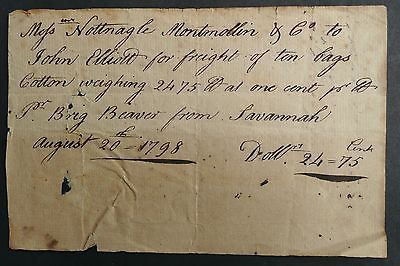 Messrs Nottnagle Montmollin & Co. to
John Elliott for freight of ten bags
Cotton weighing 2475 lb at one cent pr lb
Pr Brig Beaver from Savannah
August 20th 1798 Dollrs 24=75 Cents